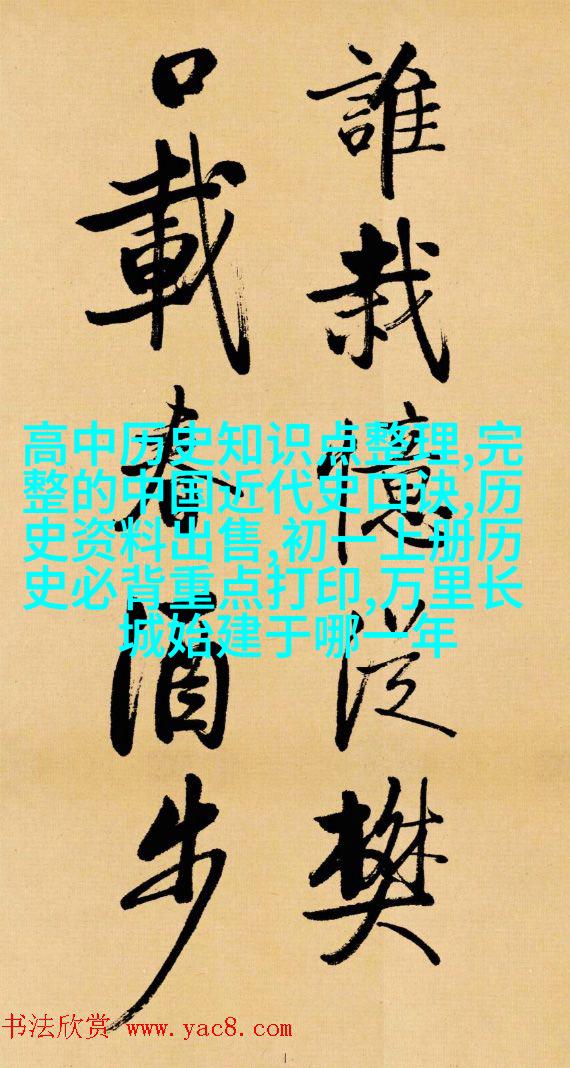 誰栽憶從樊
口載春酒步
高中历史知识点整理,完
整的中国近代史口诀,历
史资料出售,初一上册历
史必背重点打印,万里长
城始建于哪一年
书法欣赏 www.yac8.com